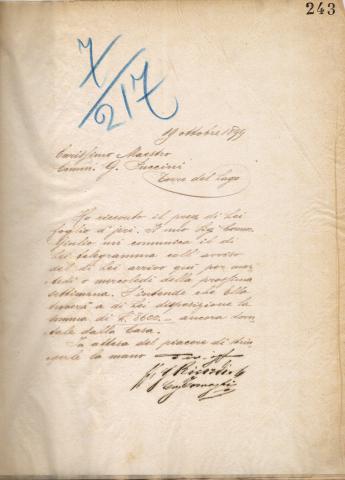 243
7/217
19 ottobre 1899
Carissimo Maestro
Comm. G. Puccini
Torre del Lago
Ho ricevuto il preg. di Lei
foglio d'jeri. Il mio Sig. Comm.
Giulio mi comunica il di
Lei telegramma coll'avviso
del di Lei arrivo qui per mar
tedì o mercoledì della prossima
settimana. S'intende che Ella
troverà a di Lei disposizione la
somma di L. 8600.-- ancora
dalla Casa.
In attesa del piacere di strin
gerle la mano
G. Ricordi & C.